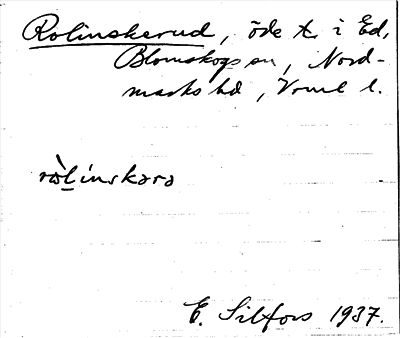 Rolinskerud, öde t. i Ed,
Blomskogs sn, Nord-
marks hd, Vrml l.
ròlinskərə
E. Silfors 1937.